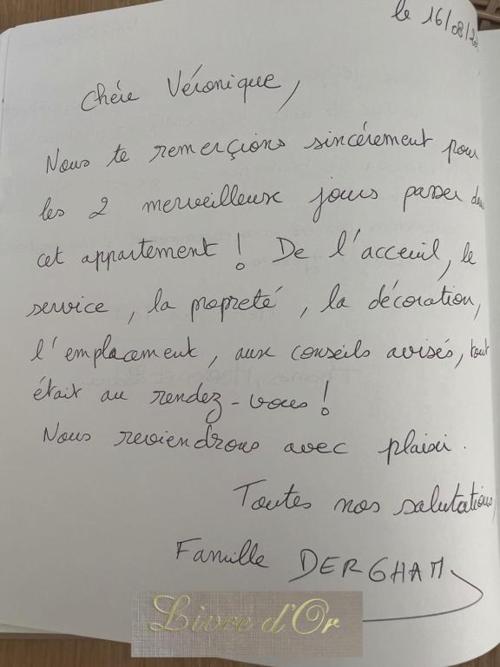 le 16/08/20
Chére Véronique,
Nous te remerçions sincérement pour
les 2 merveilleux jours passer dans
cet appartement ! De l'acceuil, le
service, la propreté, la décoration,
l'emplacement, aux conseils avisés, tout
était au rendez-vous !
Nous reviendrons avec plaisir.
Toutes nos salutations,
Famille DERGHAM
Livre d'Or